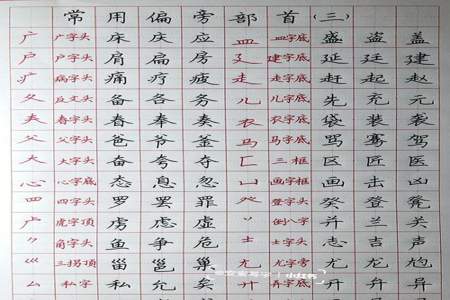 常用偏旁部首(三)
广 广字头 床 庆 应 皿 皿字底 盛 盗 盖
户 户字头 肩 扁 房 廴 建字底 延 廷 建
疒 病字头 痛 疗 疲 走 走字底 赶 起 赵
夂 反文头 备 各 务 儿 儿字底 先 充 元
春字头 春 奉 奏 衣 衣字底 袋 装 袭
父 父字头 爸 爷 釜 马 马字底 骂 骞 驾
大 大字头 奋 夸 夺 匚 三框 区 匠 医
心 心字底 态 息 忽 凵 画字框 画 击 凶
四字头 罗 罢 罪 登字头 癸 登 凳
虎字顶 虏 虑 虚 倒八字 并 兰 关
角字头 鱼 争 危 士 士字头 志 吉 声
巛 三拐顶 甾 邕 巢 尤 尤字旁 尤 龙 尥
厶 私字 私 允 矣 廾 弄字底 开 弁 异
小红书